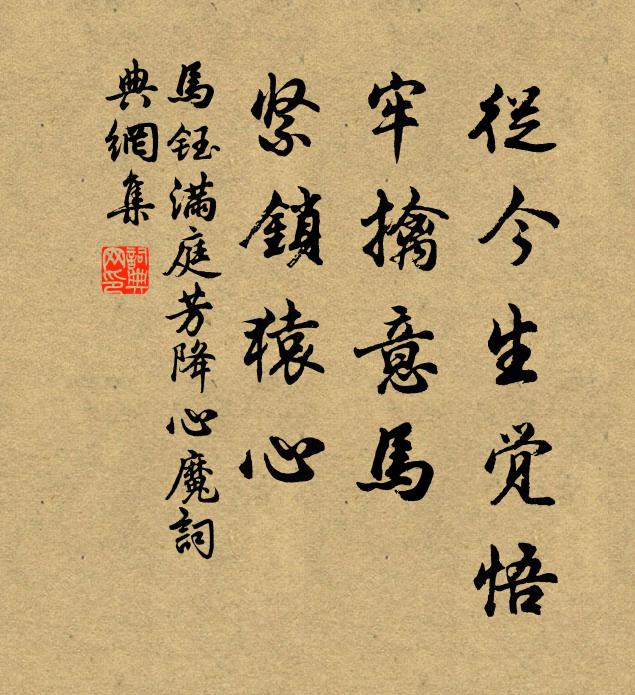 從今生覺悟
牢擒意馬
緊鎖猿心
馬鈺滿庭芳降心魔詞
典網集
詞典網印